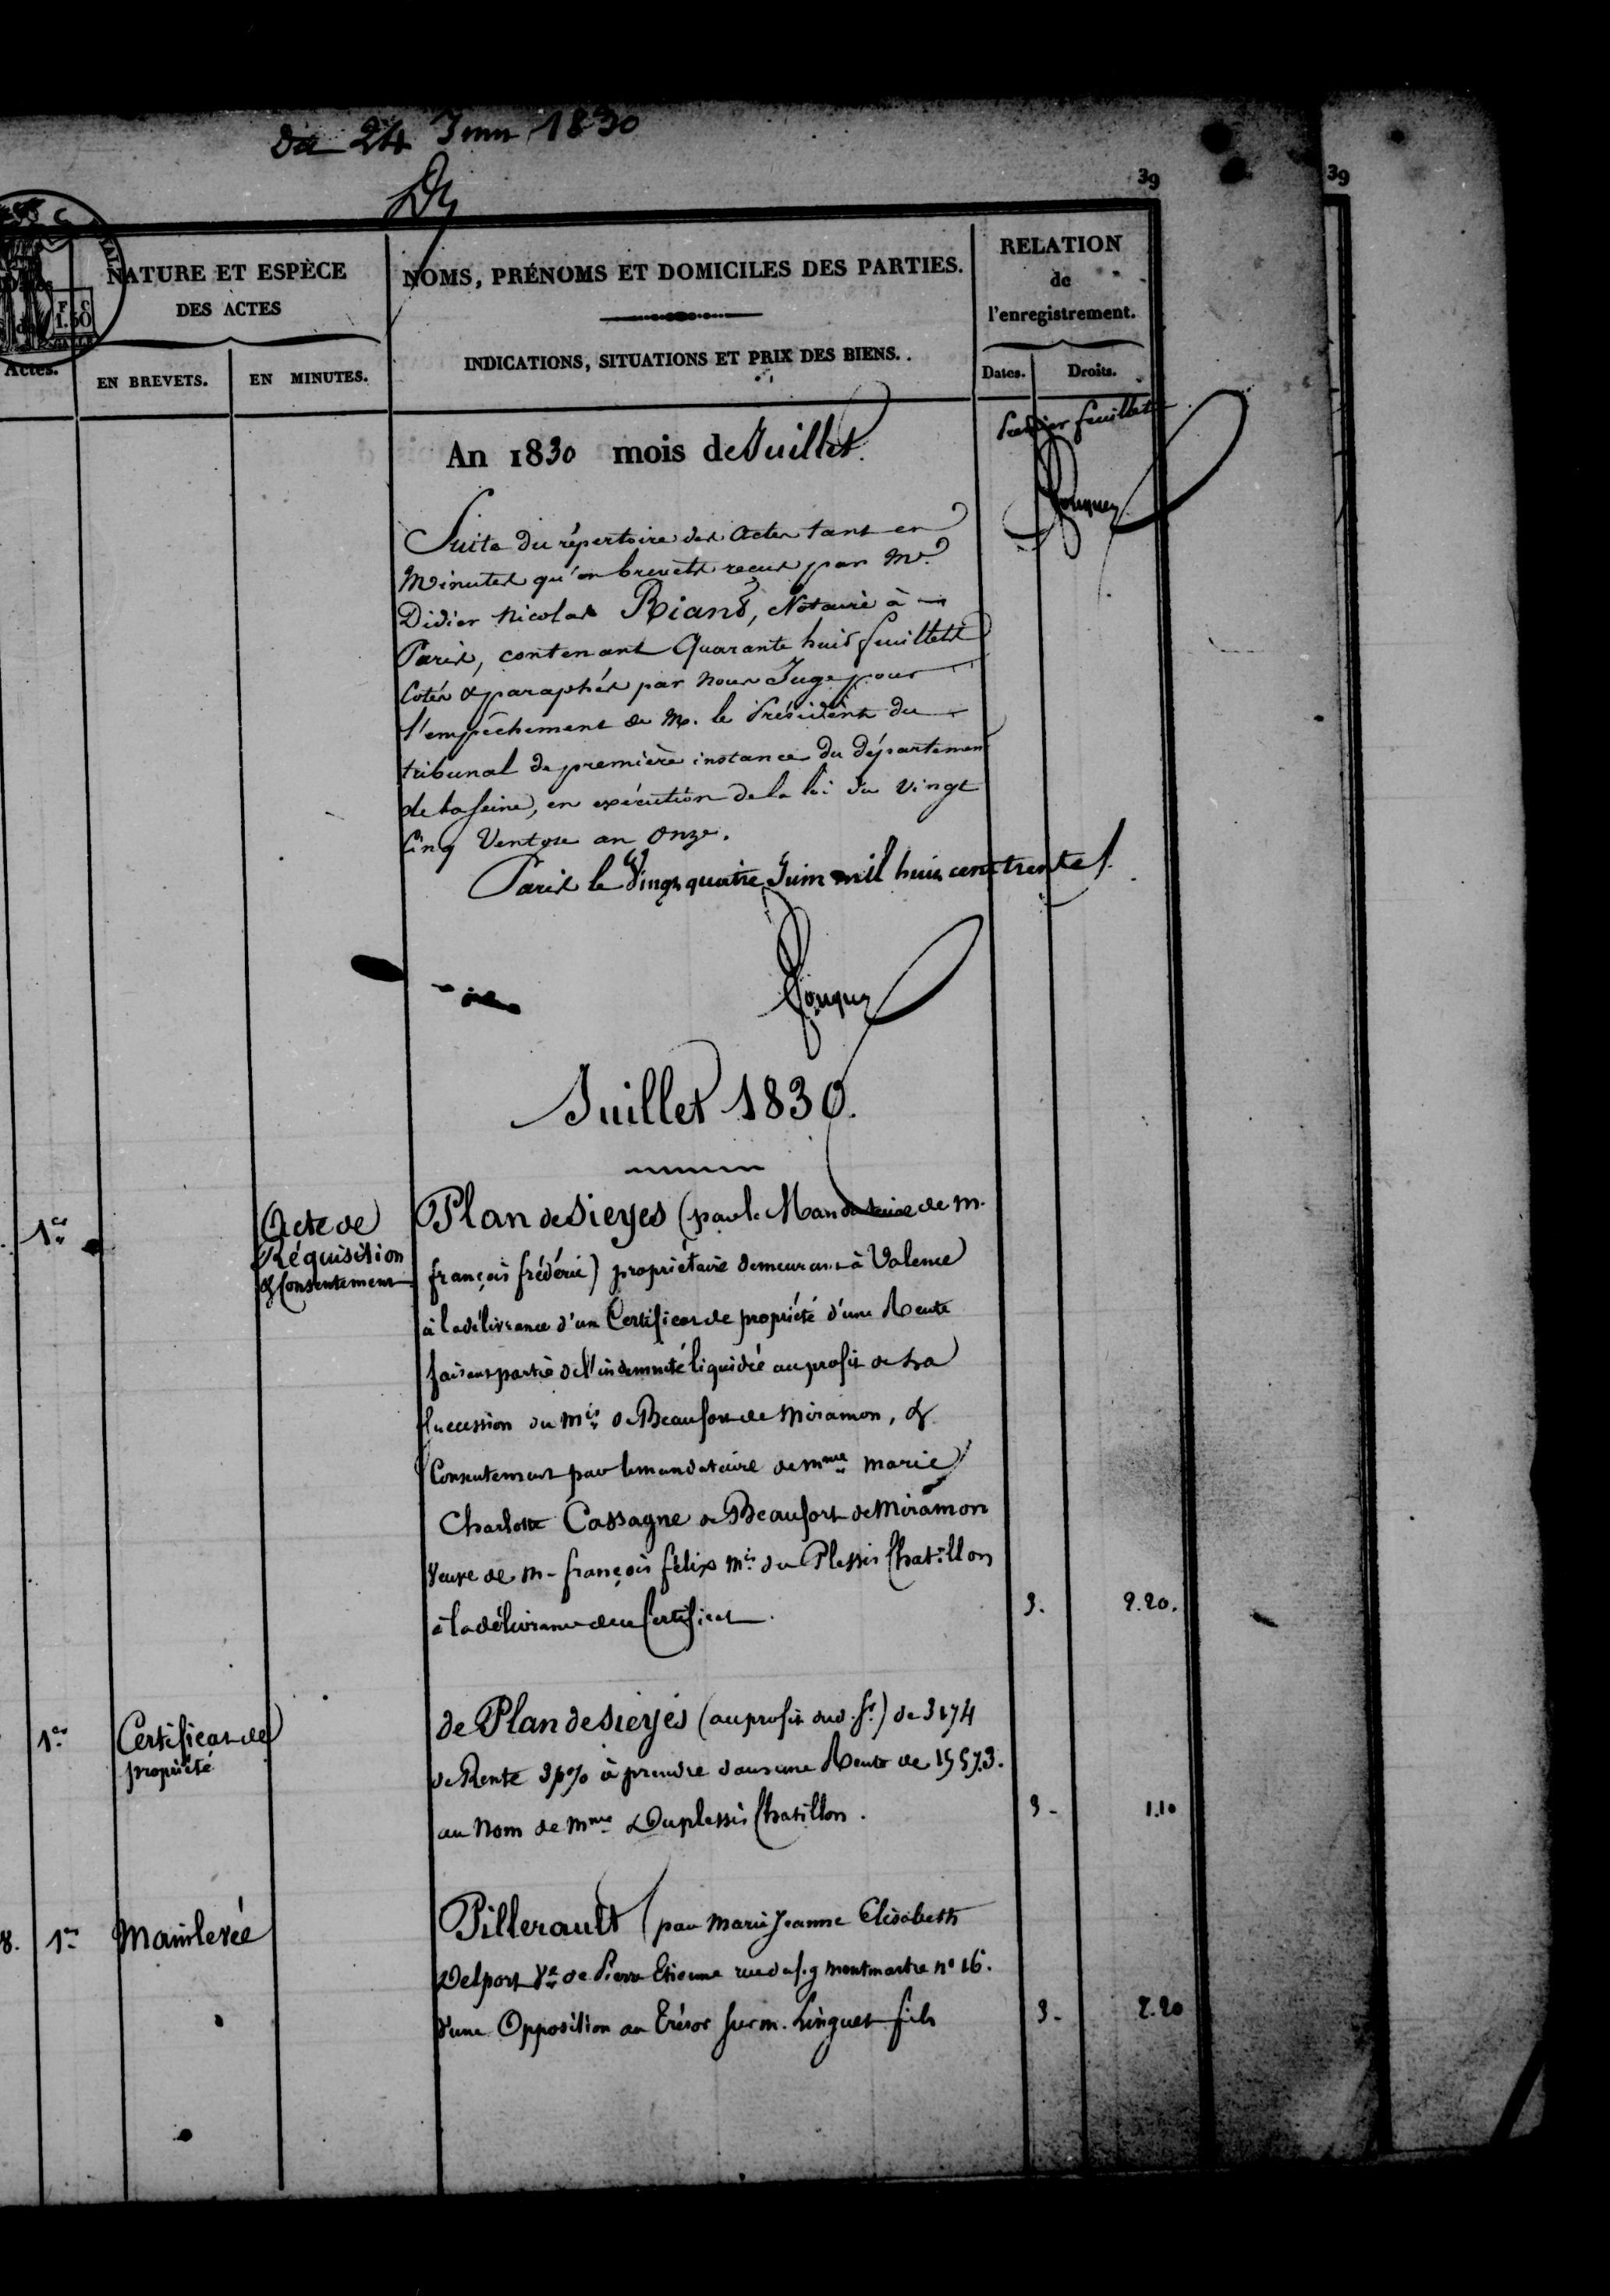 Du 24 Juin 1830
39
39
NATURE ET ESPÈCE
DES ACTES
EN BREVETS.
EN MINUTES.
Actes.
F. C.
1.50
NOMS, PRÉNOMS ET DOMICILES DES PARTIES.
INDICATIONS, SITUATIONS ET PRIX DES BIENS.
RELATION
de
l'enregistrement.
Dates.
Droits.
feuillet
An 1830 mois de Juillet.
Suite du répertoire des actes tant en
Minutes qu'en brevets reçus par Me.
Didier Nicolas Riant, Notaire à
Paris, contenant Quarante huit feuillets
Cotés & paraphés par nous Juge pour
l'empêchement de M. le Président du
tribunal de première instance du départemen
de la Seine, en exécution de la loi du vingt
Cinq Ventose an Onze.
Paris le Vingt quatre Juin mil huit cent trente
Juillet 1830.
1er
Acte de
Réquisition
& Consentement
Plan de Sieyes (par le Mandataire de M.
françois frédéric) propriétaire demeurant à Valence
à la délivrance d'un Certificat de propriété d'une Rente
faisant partie de l'indemnité liquidée au profit de la
Succession du Mis de Beaufort de Miramon, &
Consentement par le mandataire de Mme Marie
Charlotte Cassagne de Beaufort de Miramon
Veuve de M. françois félix Mis du Plessis Chatillon
à la délivrance de ce Certificat.
3.
2.20.
1er
Certificat de
propriété
de Plan de Sieyes (au profit dud. Sr.) de 3174
de Rente 3p% à prendre dans une Rente de 15573.
au Nom de Mme Duplessis Chatillon.
3-
1.10
8.
1er
Mainlevée
Pillerault (par Marie Jeanne Elisabeth
Delport Ve de Pierre Etienne rue du f.g Montmartre no 16.
d'une Opposition au Trésor sur M. Linguet fils
3-
2.20